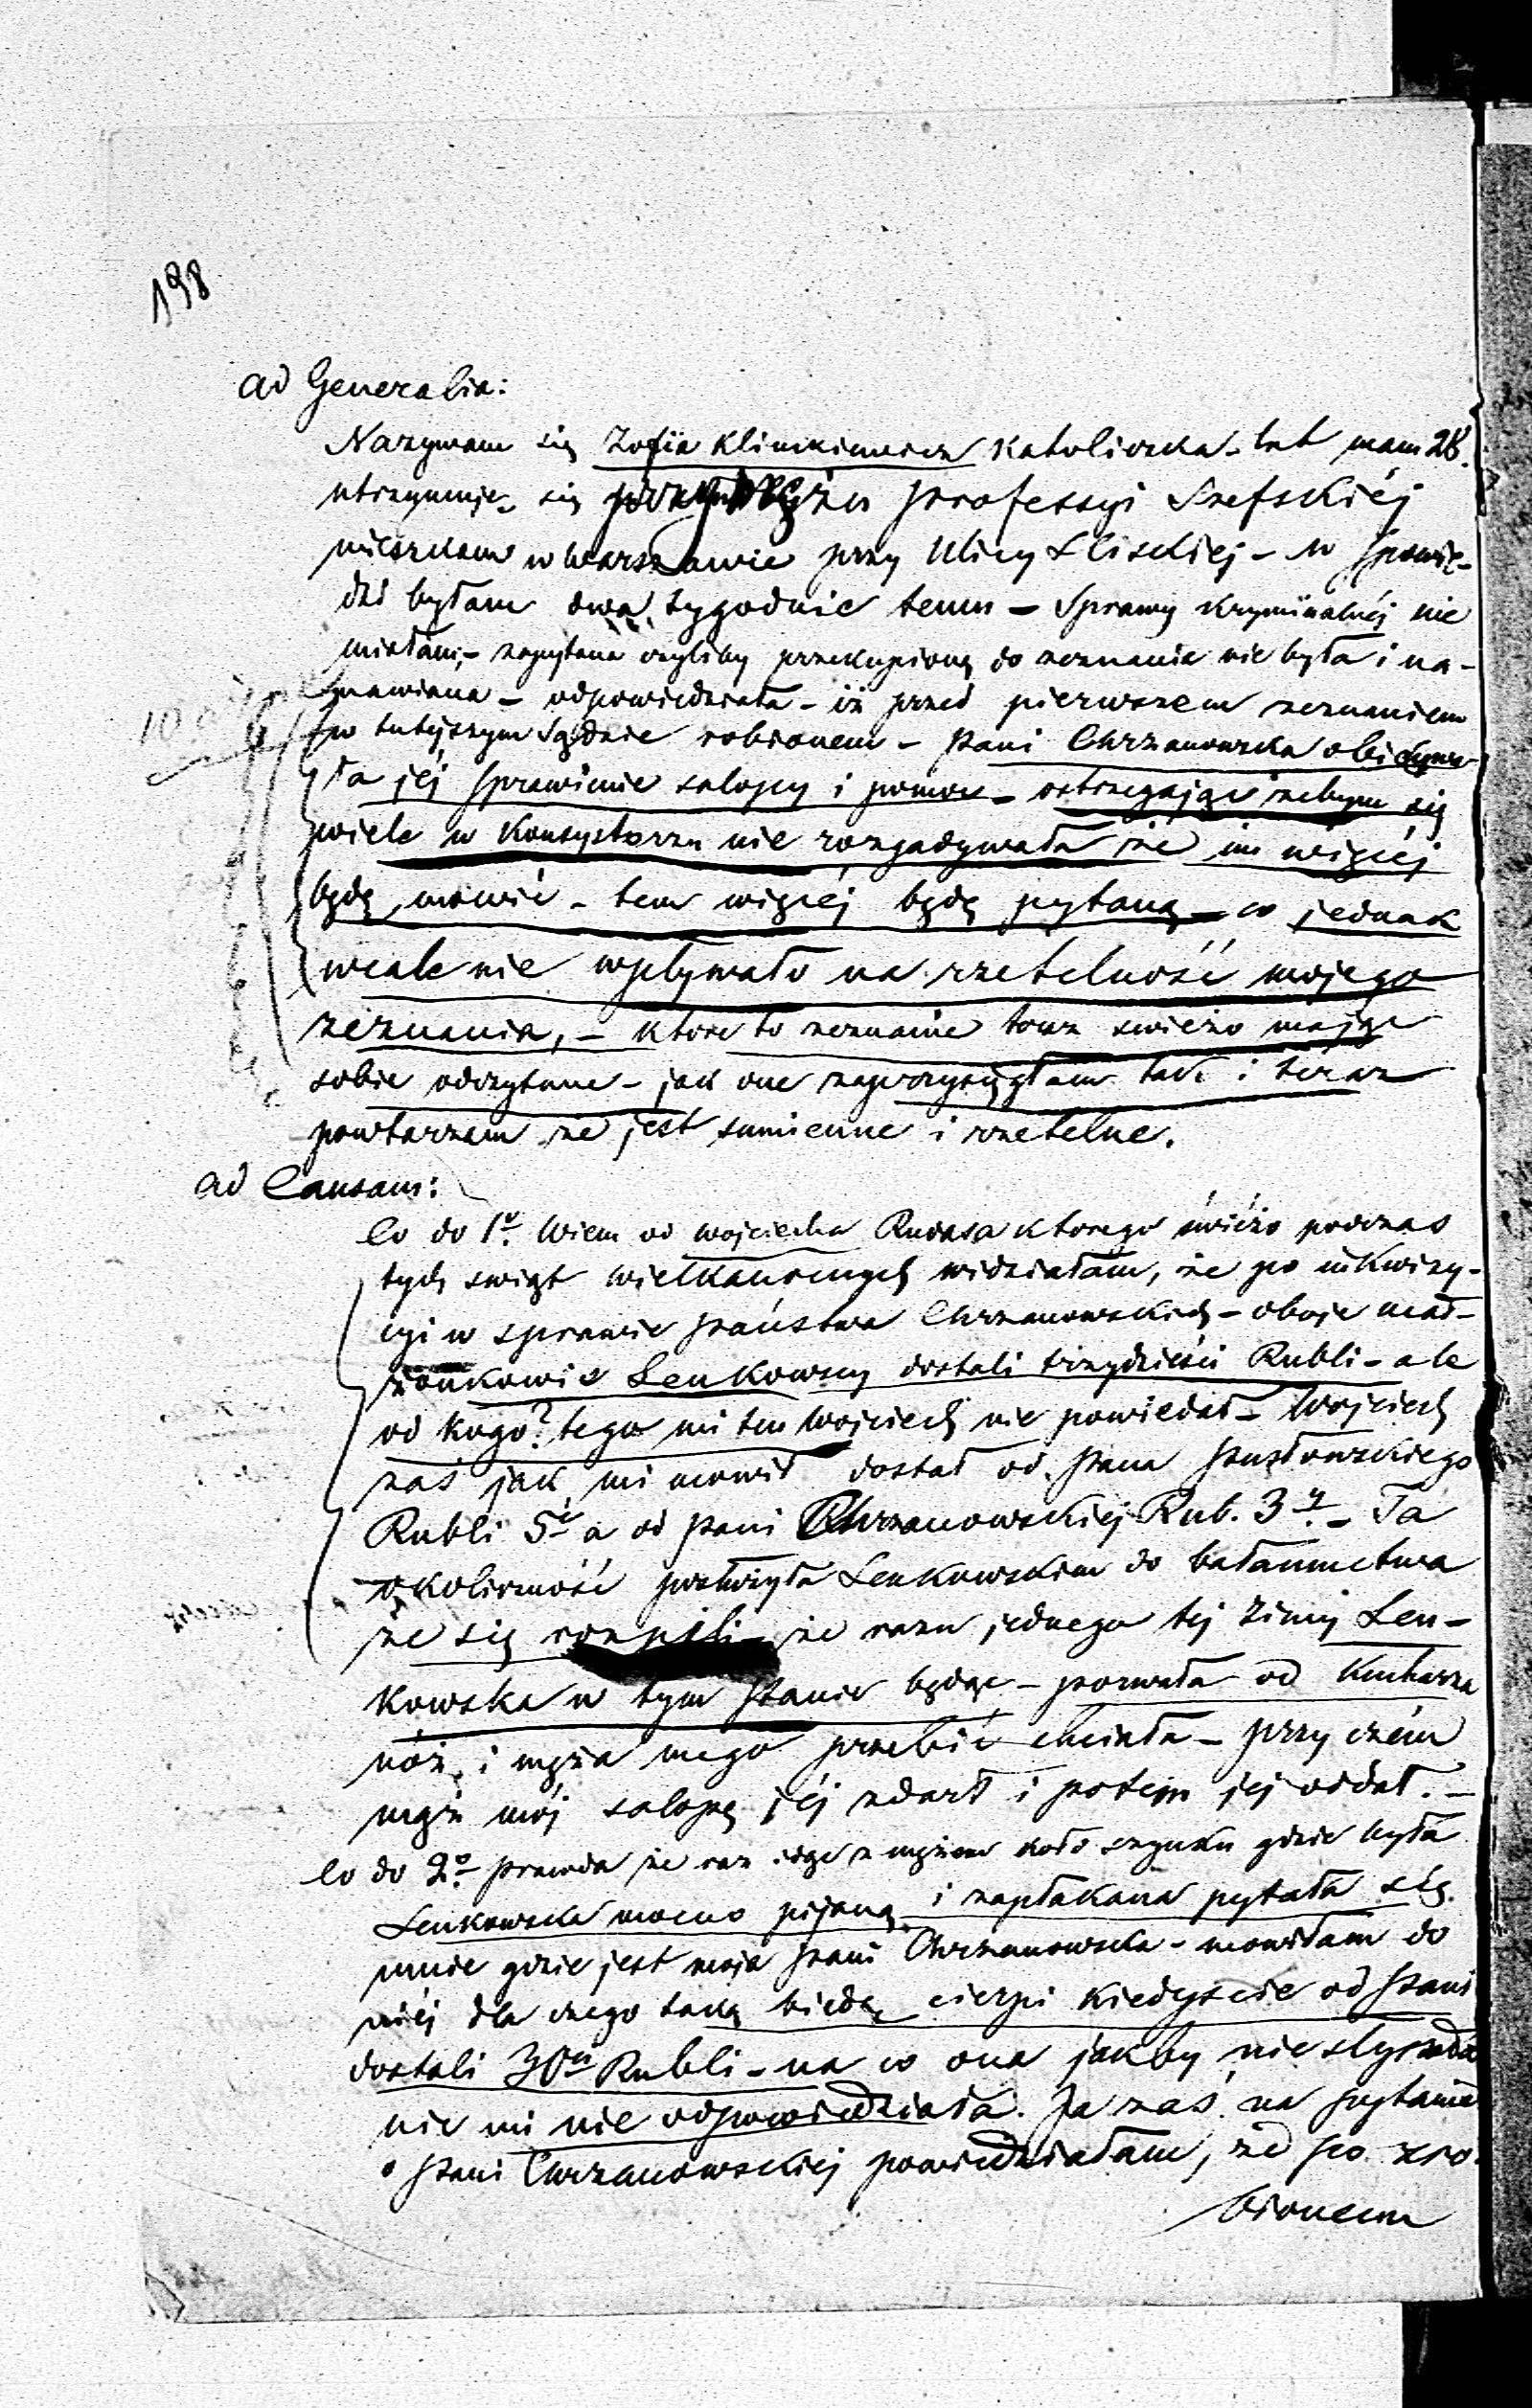 198
ad Generalia:
Nazywam się Zofija Klimkiewicz Katoliczka - lat mam 28.
utrzymuje się przy mężu professyi Szefskiéj
mieszkam w Warszawie przy Ulicy Śliskiej - w spowie-
dzi byłam dwa tygodnie temu - Sprawy Kryminalnéj nie
miałam, - zapytana czyliby przekupioną do zeznania nie była i na-
mawiana - odpowiedziała - iż przed pierwszem zeznaniem
w tutéjszym Sądzie robionem - Pani Chrzanowska obiecywa-
ła jéj sprawienie salopy i pomoc - ostrzegając żebym się
wiele w Konsystorzu nie rozgadywała że im więcéj
będę mowić - tem więcéj będę pytaną - co jednak
wcale nie wpływało na rzetelność mojego
zeznania, - ktore to zeznanie teraz swieżo mając
sobie odczytane - jak one zaprzysięgłam tak i teraz
powtarzam że jest sumienne i rzetelne.
ad Causam:
Co do 1º. Wiem od Wojciecha Rudasa ktorego świéżo podczas
tych swiąt Wielkanocnych widziałam, że po inkwizy-
cyi w sprawie Państwa Chrzanowskich - oboje mał-
żonkowie Lenkowscy dostali trzydzieści Rubli - ale
od kogo? tego mi ten Wojciech nie powiedał - Wojciech
zaś jak mi mowił dostał od Pana Pusłowskiego
Rubli 5ć a od Pani Chrzanowskiej Rub. 3y. - Ta
okoliczność posłużyła Lenkowskim do bałamuctwa
że się rozpili - że razu jednego téj zimy Len-
kowska w tym stanie będąc - porwała od Kucharza
nóż i męża mego przebić chciała - przy czém
mąż mój salopę jéj zdarł i potem jej oddał. -
Co do 2º. prawda że raz idąc z mężem koło szynku gdzie była
Lenkowska mocno pijaną i zapłakana pytała się
mnie gdzie jest moja Pani Chrzanowska - mowiłam do
niéj dla czego taką biedę cierpi kiedyście od Pani
dostali 30ci Rubli - na co ona jakby nie słyszała
nic mi nie odpowiedziała. Ja zaś na pytanie
Pani Chrzanowskiéj powiedziałam, że po zro-
bionem